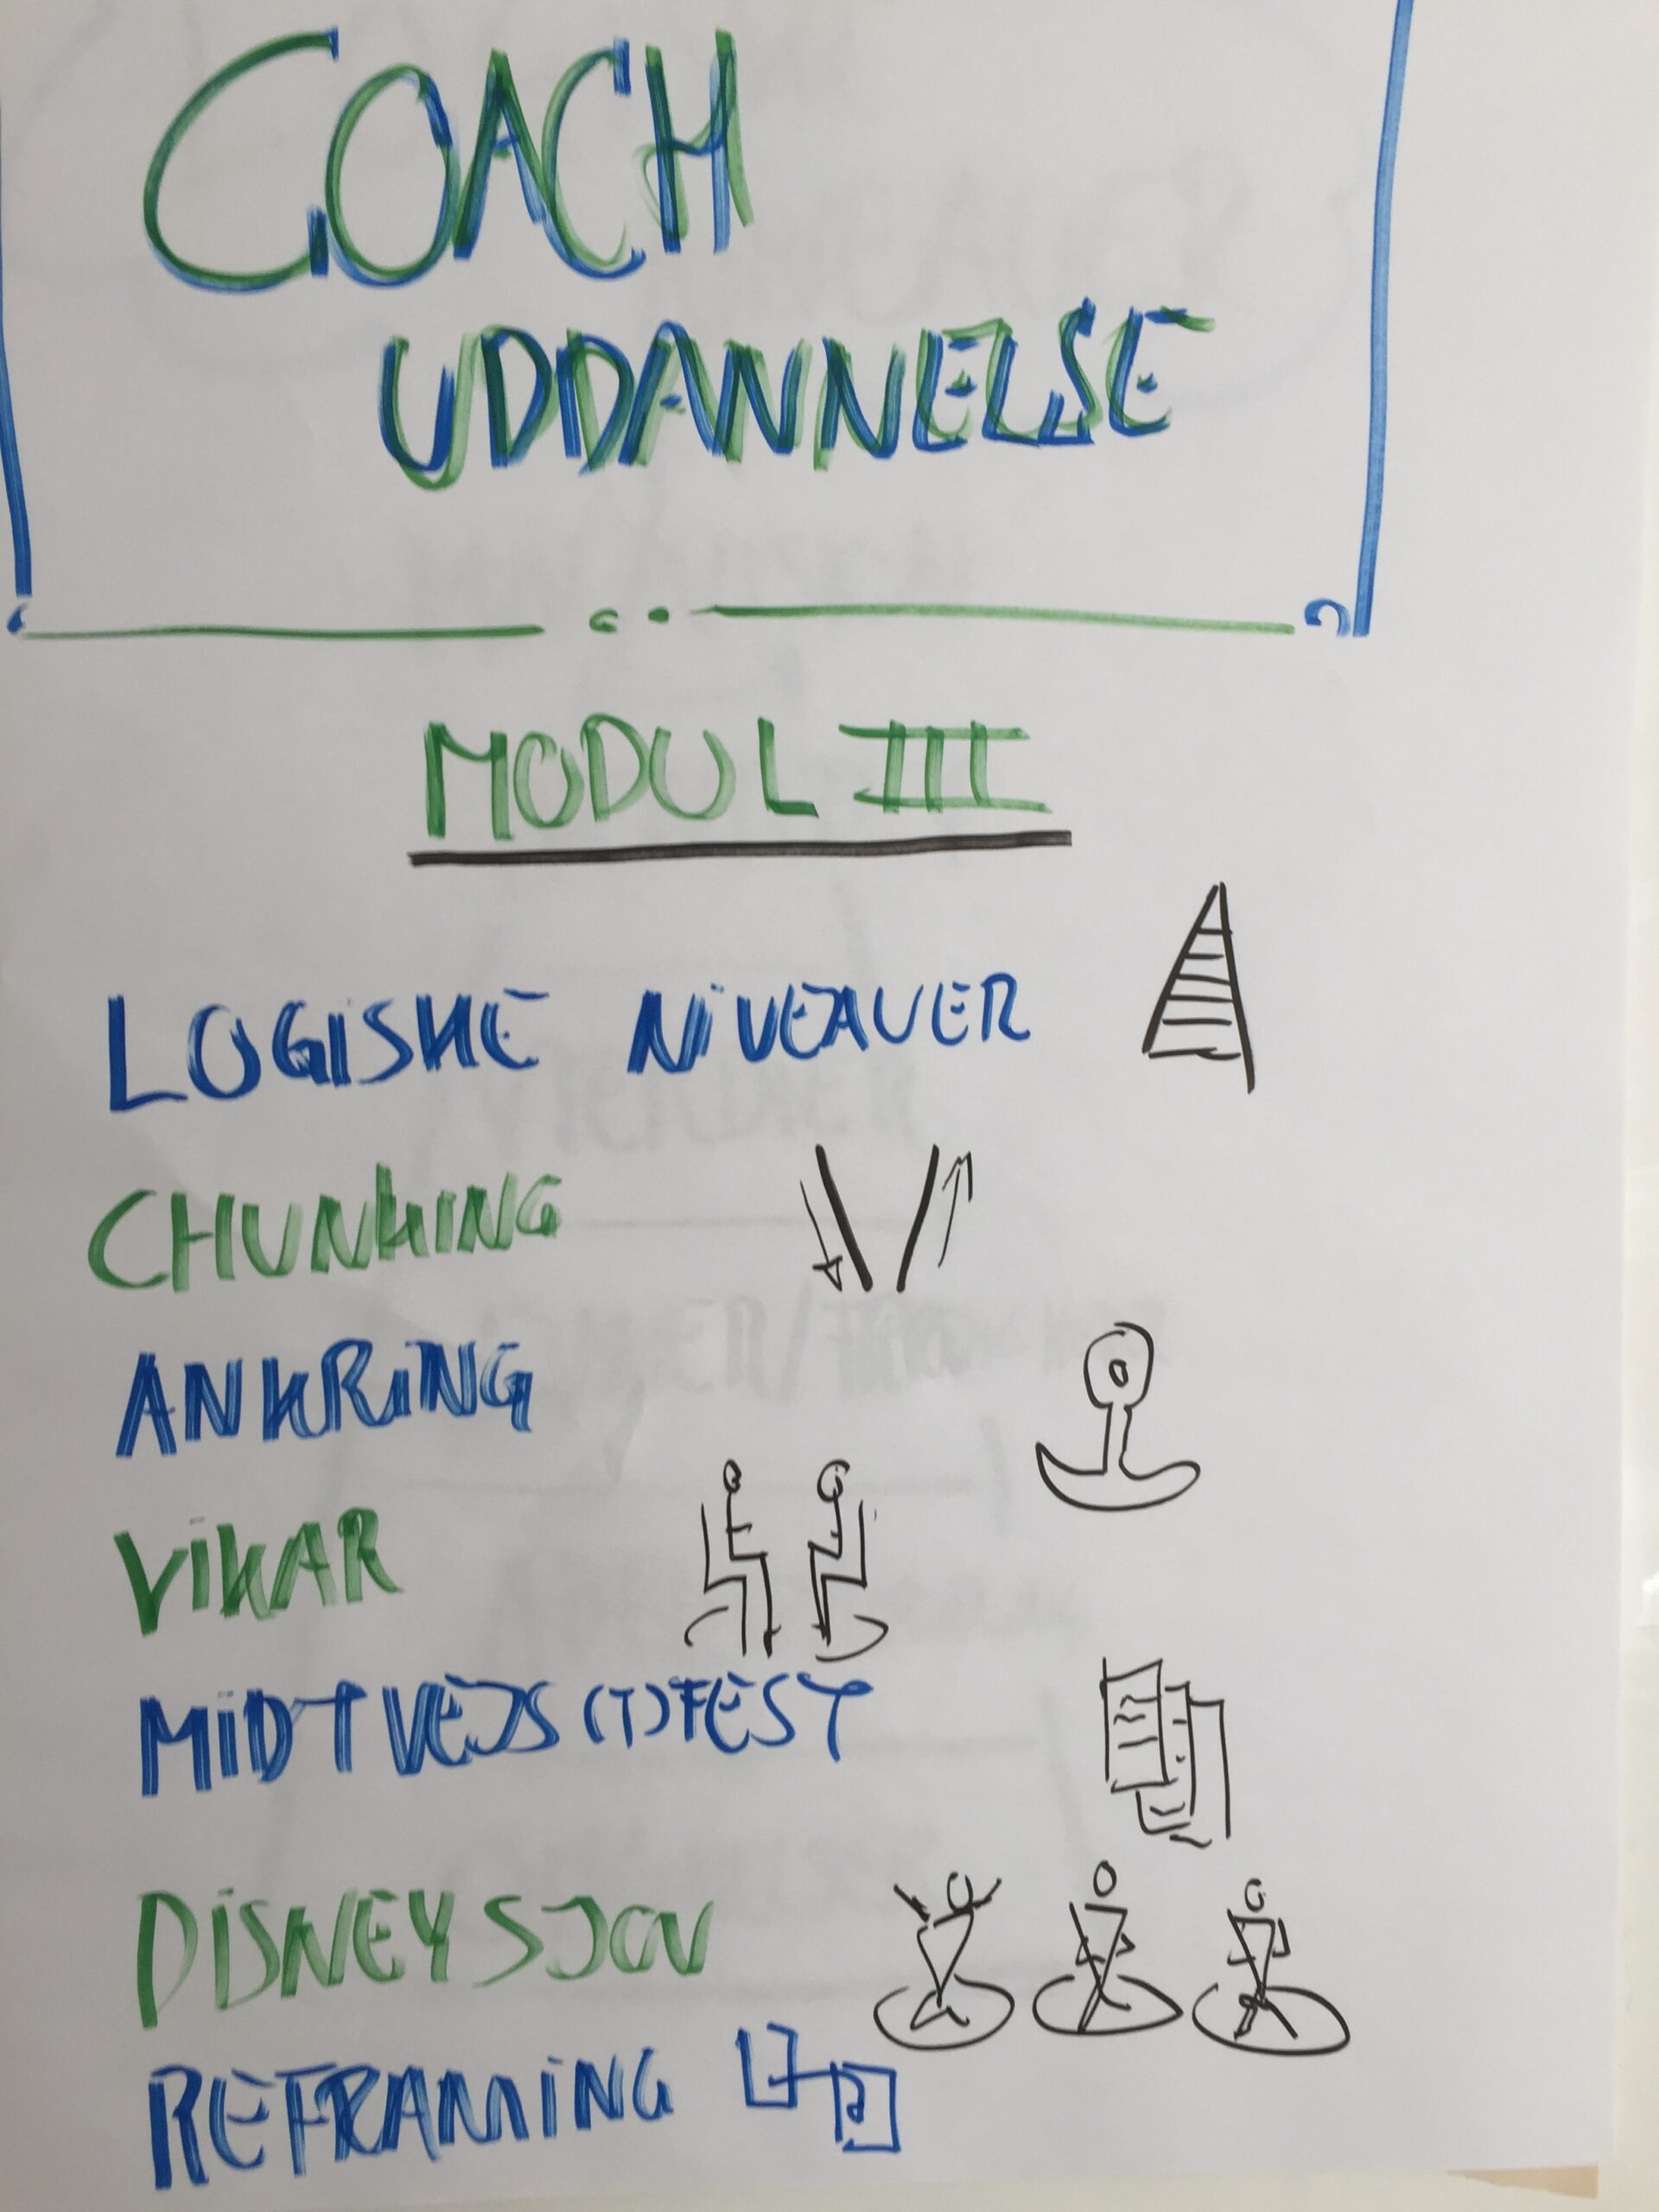 COACH
UDDANNELSE
MODUL III
LOGISKE NIVEAUER
CHUNKING
ANKRING
VIKAR
MIDTVEJS (T)FEST
DISNEY SJOV
REFRAMING